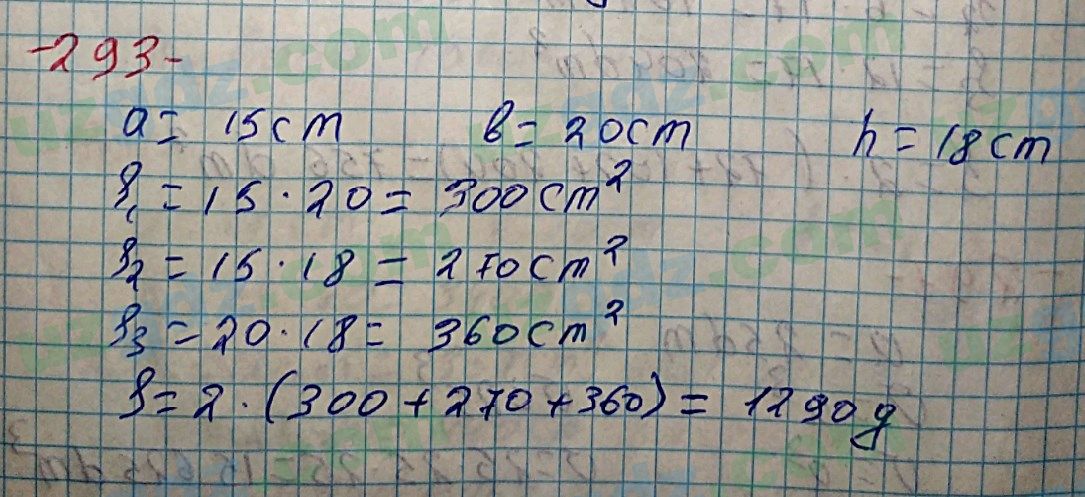 -293-
a = 15cm b = 20cm h = 18cm
S₁ = 15 · 20 = 300cm²
S₂ = 15 · 18 = 270cm²
S₃ = 20 · 18 = 360cm²
S = 2 · (300 + 270 + 360) = 1290g
uzgdz.com